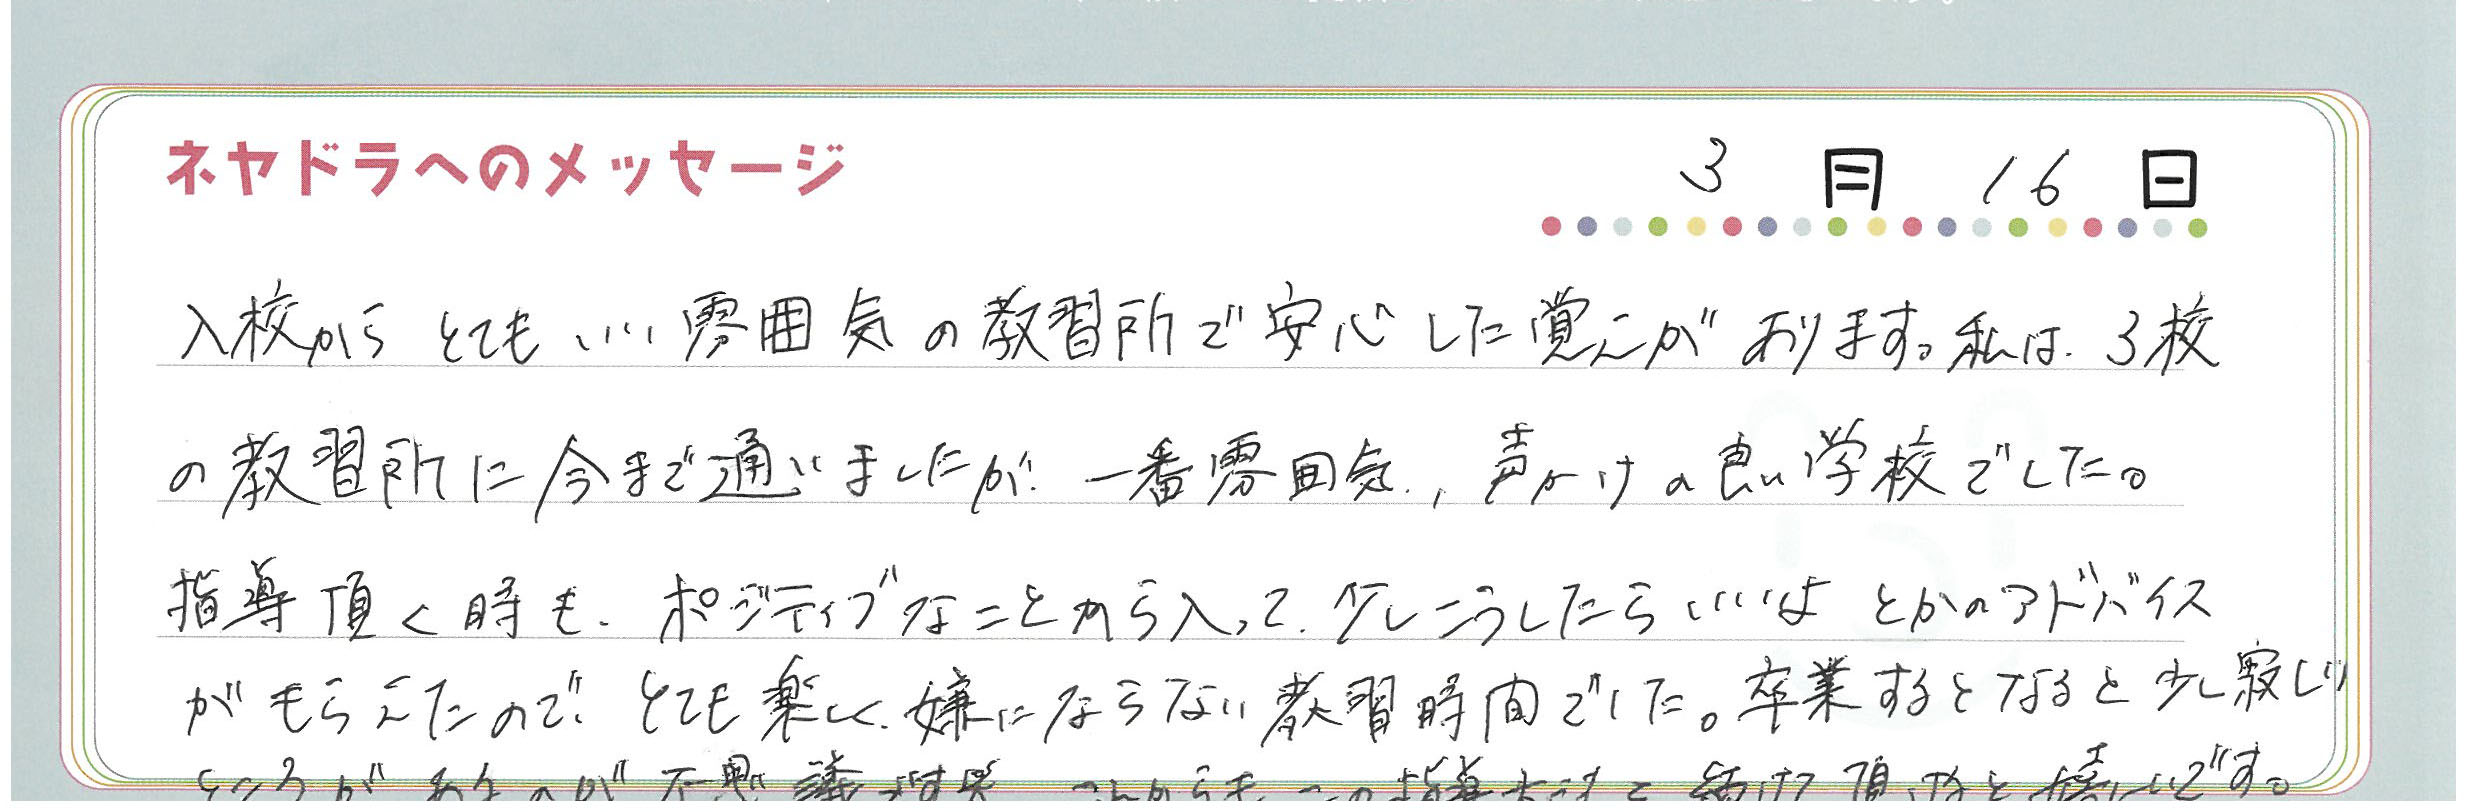 ネヤドラへのメッセージ
3月16日
入校からとてもいい雰囲気の教習所で安心した覚えがあります。私は、3校
の教習所に今まで通いましたが、一番雰囲気、声かけの良い学校でした。
指導頂く時も、ポジティブなことから入って、少しこうしたらいいよとかのアドバイス
がもらえたので、とても楽しく、嫌にならない教習時間でした。卒業するとなると少し寂しい
ところがあるのが不思議です